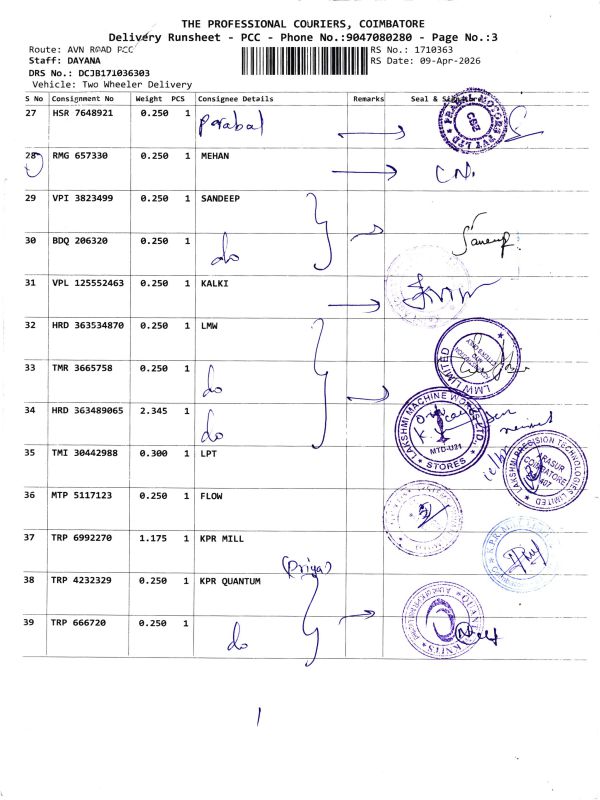 THE PROFESSIONAL COURIERS, COIMBATORE
Delivery Runsheet - PCC - Phone No.:9047080280 - Page No.:3
Route: AVN ROAD PCC
RS No.: 1710363
Staff: DAYANA
RS Date: 09-Apr-2026
DRS No.: DCJB171036303
Vehicle: Two Wheeler Delivery
S No Consignment No Weight PCS Consignee Details Remarks Seal &
27 HSR 7648921 0.250 1
28 RMG 657330 0.250 1 MEHAN
29 VPI 3823499 0.250 1 SANDEEP
30 BDQ 206320 0.250 1 do
31 VPL 125552463 0.250 1 KALKI
32 HRD 363534870 0.250 1 LMW
LMW LIMITED
33 TMR 3665758 0.250 1 do
34 HRD 363489065 2.345 1 do
LAKSHMI MACHINE WORKS LTD
MTD-U21
STORES
35 TMI 30442988 0.300 1 LPT
LAKSHMI PRECISION TECHNOLOGIES LIMITED
ARASUR
COIMBATORE
36 MTP 5117123 0.250 1 FLOW
37 TRP 6992270 1.175 1 KPR MILL
(Priya)
38 TRP 4232329 0.250 1 KPR QUANTUM
39 TRP 666720 0.250 1 do